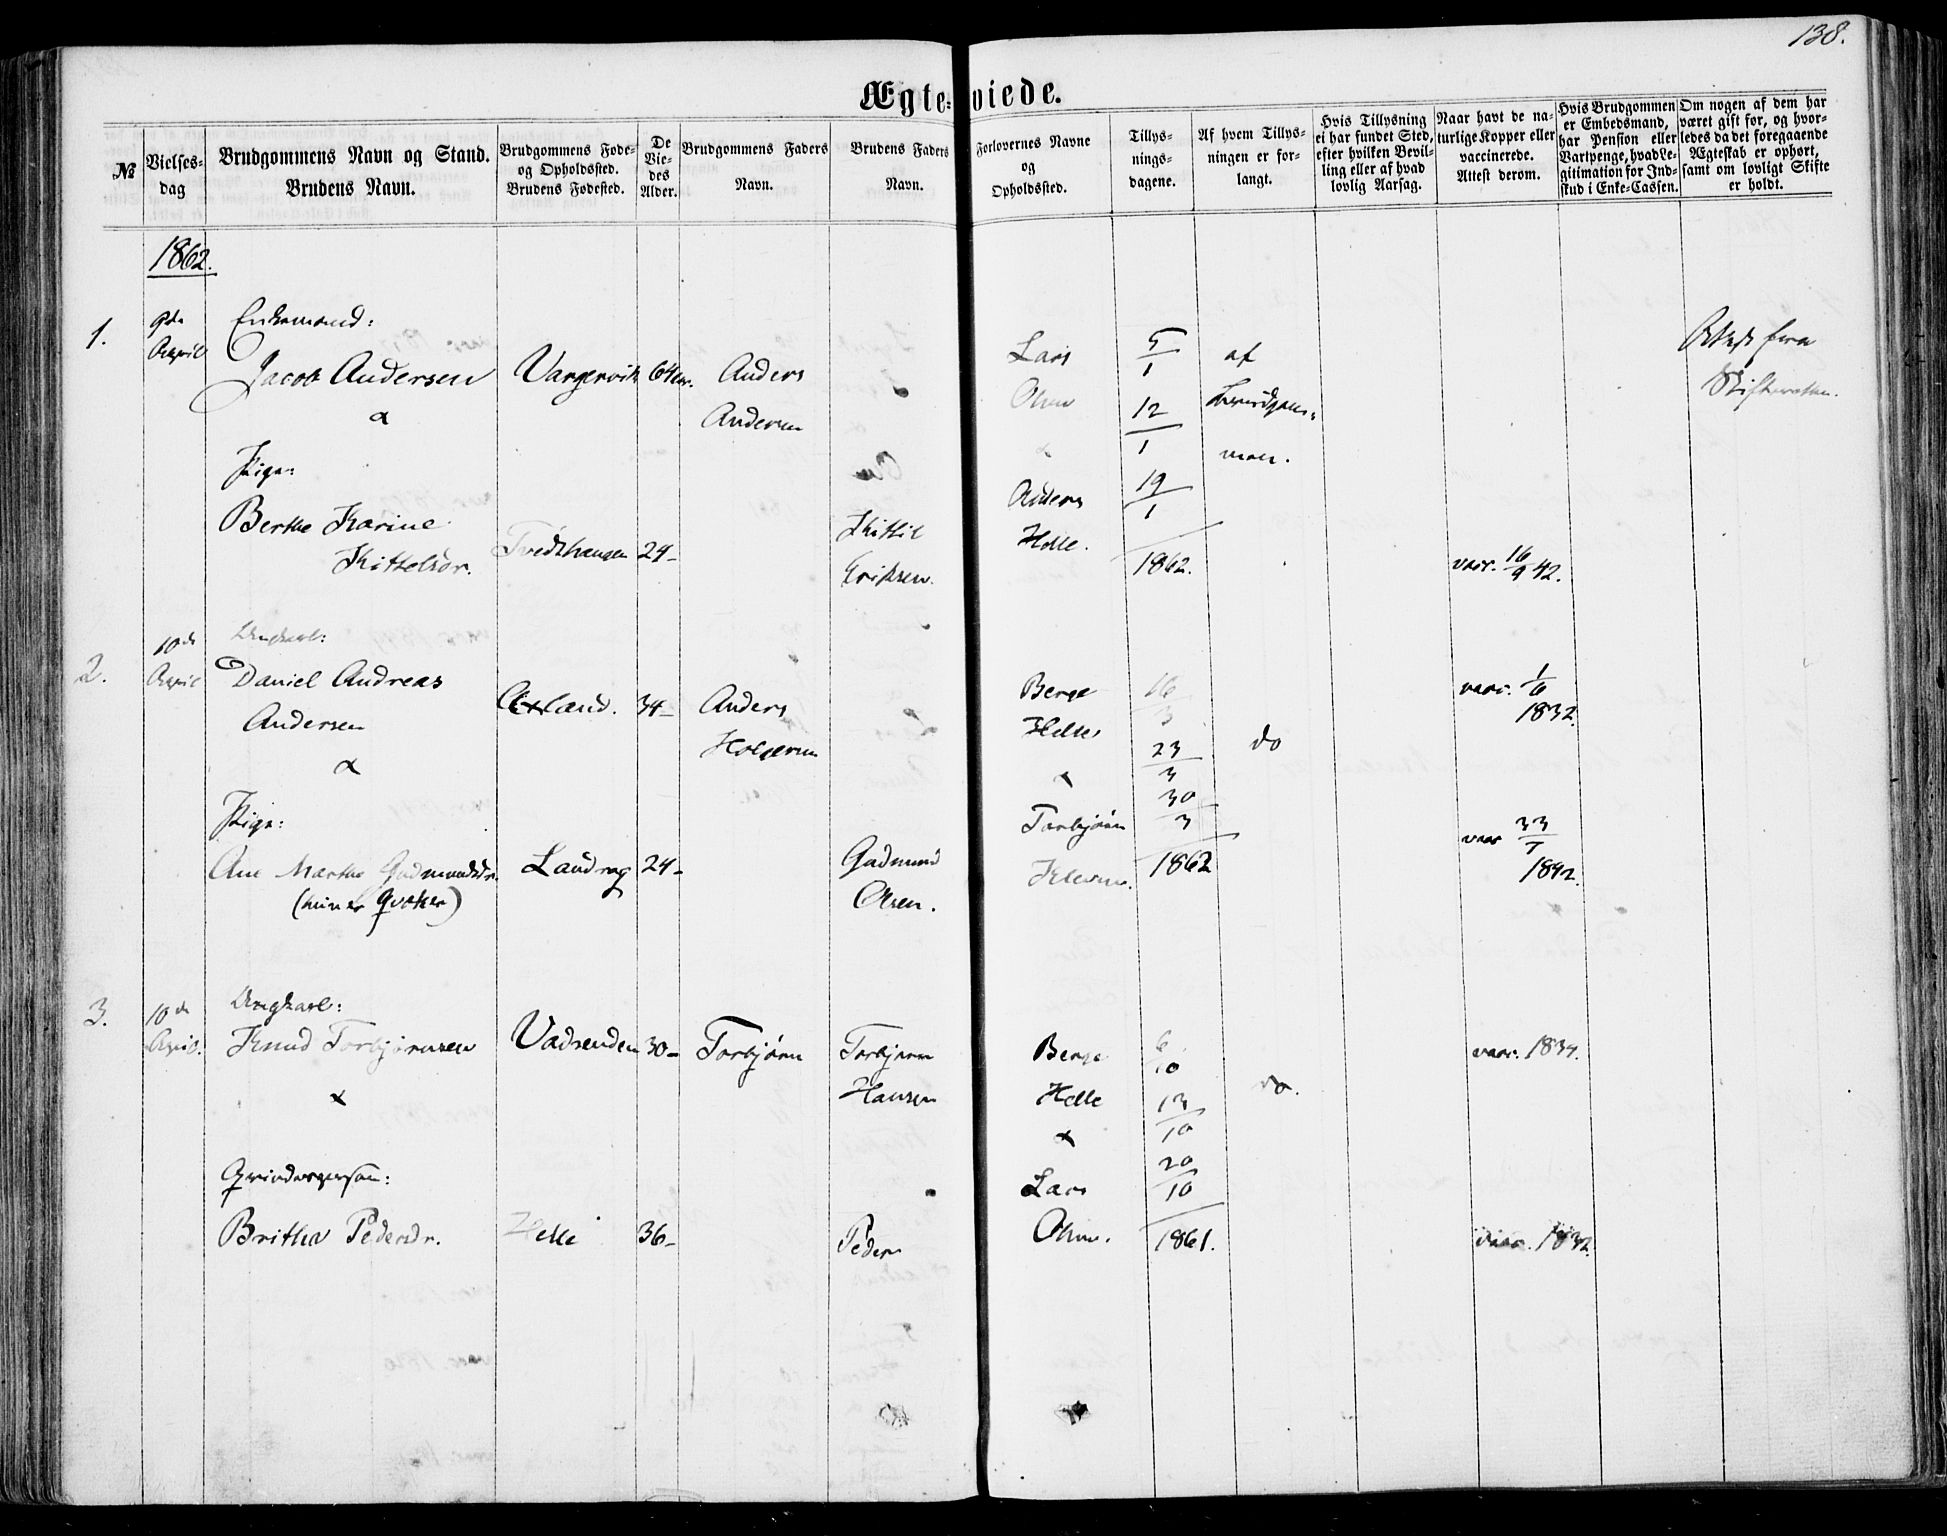 138.
Ægteviede.
№
Vielses-
dag
Brudgommens Navn og Stand.
Brudens Navn.
Brudgommens Føde-
og Opholdssted.
Brudens Fødested.
De
Vie-
des
Alder.
Brudgommens Faders
Navn.
Brudens Faders
Navn.
Forlovernes Navne
og
Opholdssted.
Tillys-
nings-
dagene.
Af hvem Tillys-
ningen er for-
langt.
Hvis Tillysning
ei har fundet Sted,
efter hvilken Bevil-
ling eller af hvad
lovlig Aarsag.
Naar havt de na-
turlige Kopper eller
vaccinerede.
Attest derom.
Hvis Brudgommen
er Embedsmand,
har Pension eller
Vartpenge, hvad Le-
gitimation for Ind-
skud i Enke-Cassen.
Om nogen af dem har
været gift før, og hvor-
ledes da det foregaaende
Ægteskab er ophørt,
samt om lovligt Skifte
er holdt.
1862.
1.
9de
April
Enkemand:
Jacob Andersen
&
Pige:
Berthe Karine
Kittelsdr.
64 24-
Anders
Andersen
Kittil
Eriksen.
Lars
Olsen
&
Anders
Helle.
5/1
12/1
19/1
1862.
af
Brudgom-
men.
vacc. 16/9 42.
Attest fra
Skifteretten.
2.
10de
April
Ungkarl:
Daniel Andreas
Andersen
&
Pige:
Ane Marthe Gudmundsdr.
(hun er Qvæker)
Landrag
34-
24-
Anders
Holgersen
Gudmund
Olsen.
Berge
Helle
&
Torbjørn
16/3
23/3
30/3
1862
do
vacc. 1/6
1832.
vacc
1842.
3.
10de
April.
Ungkarl:
Knud Torbjørnsen
&
Qvindesperson:
Britha Pedersdr.
Vadsenden
Helle
30-
36-
Torbjørn
Torbjørn
Hansen
Peder
Berge
Helle
&
Lars
Olsen.
6/10
13/10
20/10
1861.
do.
vacc. 1834.
vacc. 1832.